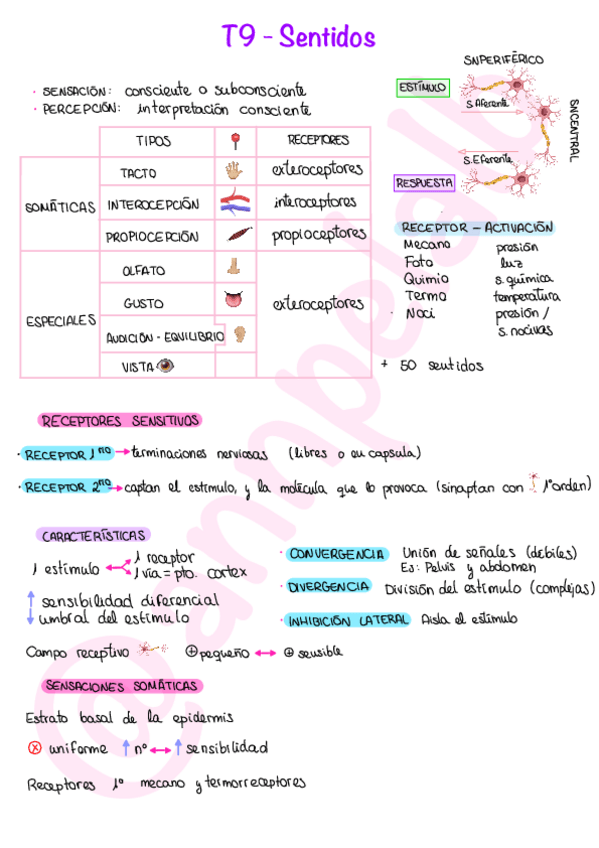 T9 - Sentidos
· SENSACIÓN: consciente o subconsciente
· PERCEPCIÓN: interpretación consciente
SNPERIFÉRICO
ESTÍMULO
S.Aferente
SNCENTRAL
S.Eferente
RESPUESTA
TIPOS RECEPTORES
SOMÁTICAS
TACTO exteroceptores
INTEROCEPCIÓN interoceptores
PROPIOCEPCIÓN propioceptores
ESPECIALES
OLFATO
GUSTO
AUDICIÓN - EQUILIBRIO
VISTA
exteroceptores
RECEPTOR - ACTIVACIÓN
Mecano presión
Foto luz
Quimio s. química
Termo temperatura
· Noci presión /
s. nocivas
+ 50 sentidos
RECEPTORES SENSITIVOS
· RECEPTOR 1no → terminaciones nerviosas (libres o eu capsula)
· RECEPTOR 2no → captan el estímulo, y la molécula que lo provoca (sinaptan con 1ºorden)
CARACTERÍSTICAS
1 estímulo
1 receptor
1 vía = pto. cortex
↑ sensibilidad diferencial
↓ umbral del estímulo
· CONVERGENCIA Unión de señales (débiles)
EJ: Pelvis y abdomen
· DIVERGENCIA División del estímulo (complejas)
· INHIBICIÓN LATERAL Aisla el estímulo
Campo receptivo ⊕ pequeño ↔ ⊕ sensible
SENSACIONES SOMÁTICAS
Estrato basal de la epidermis
ⓧ uniforme ↑ nº ↔ ↑ sensibilidad
Receptores 1º mecano y termorreceptores
@annpelab